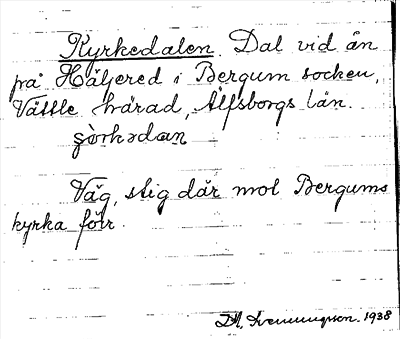 Kyrkedalen. Dal vid ån
på Häljered i Bergum socken,
Vättle härad, Älfsborgs län.
Väg, stig där mot Bergums
kyrka förr.
1938